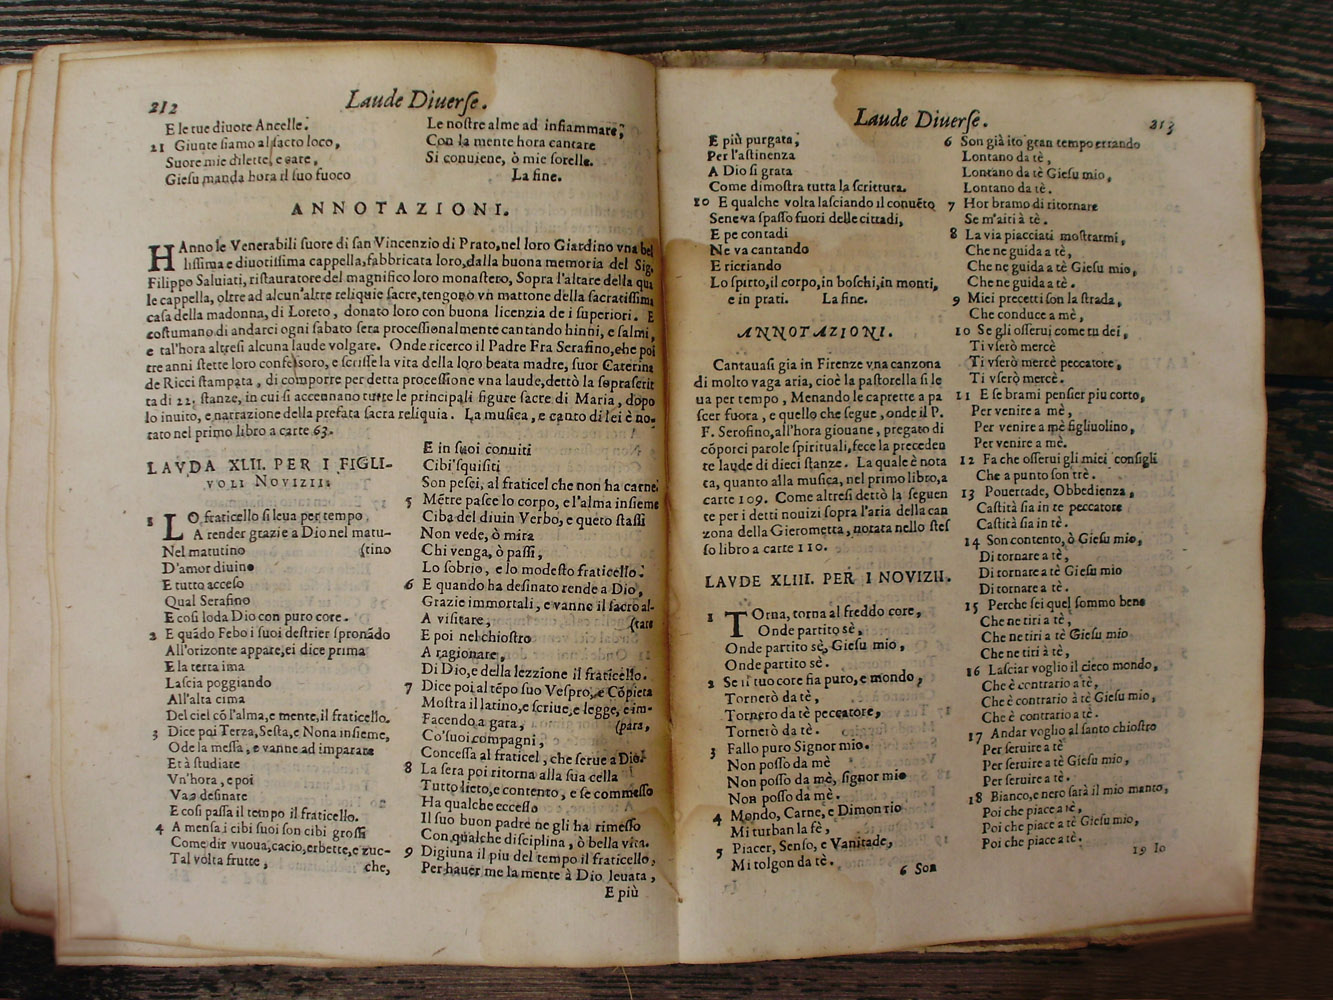 212
Laude Diuerse.
E le tue diuote Ancelle.
21 Giunte siamo al sacro loco,
Suore mie dilette, e care,
Giesu manda hora il suo fuoco
Le nostre alme ad infiammare,
Con la mente hora cantare
Si conuiene, ò mie sorelle.
La fine.
ANNOTAZIONI.
HAnno le Venerabili suore di san Vincenzio di Prato, nel loro Giardino vna bel
lissima e diuotissima cappella, fabbricata loro, dalla buona memoria del Sig.
Filippo Saluiati, ristauratore del magnifico loro monastero, Sopra l'altare della qua
le cappella, oltre ad alcun'altre reliquie sacre, tengono vn mattone della sacratissima
casa della madonna, di Loreto, donato loro con buona licenzia de i superiori. E
costumano di andarci ogni sabato sera processionalmente cantando hinni, e salmi,
e tal'hora altresi alcuna laude volgare. Onde ricerco il Padre Fra Serafino, che poi
tre anni stette loro confessoro, e scrisse la vita della loro beata madre, suor Caterina
de Ricci stampata, di comporre per detta processione vna laude, dettò la soprascrit
ta di 22. stanze, in cui si accennano tutte le principali figure sacre di Maria, dopo
lo inuito, e narrazione della prefata sacra reliquia. La musica, e canto di lei è no-
tato nel primo libro a carte 63.
LAVDA XLII. PER I FIGLI-
VOLI NOVIZII.
1 LO fraticello si leua per tempo,
A render grazie a Dio nel matu-
Nel matutino (tino
D'amor diuino
E tutto acceso
Qual Serafino
E cosi loda Dio con puro core.
2 E quãdo Febo i suoi destrier spronãdo
All'orizonte appare, ei dice prima
E la terra ima
Lascia poggiando
All'alta cima
Del ciel cõ l'alma, e mente, il fraticello.
3 Dice poi Terza, Sesta, e Nona insieme,
Ode la messa, e vanne ad imparare
Et à studiare
Vn'hora, e poi
Va a desinare
E cosi passa il tempo il fraticello.
4 A mensa i cibi suoi son cibi grossi
Come dir vuoua, cacio, erbette, e zuc-
Tal volta frutte, che,
E in suoi conuiti
Cibi squisiti
Son pesci, al fraticel che non ha carne
5 Mẽtre pasce lo corpo, e l'alma insieme
Ciba del diuin Verbo, e queto stassi
Non vede, ò mira
Chi venga, ò passi,
Lo sobrio, e lo modesto fraticello.
6 E quando ha desinato rende a Dio,
Grazie immortali, e vanne il sacro al-
A visitare, (tare
E poi nel chiostro
A ragionare,
Di Dio, e della lezzione il fraticello.
7 Dice poi al tẽpo suo Vespro, e Cõpieta
Mostra il latino, e scriue, e legge, e im-
Facendo a gara, (para,
Co'suoi compagni,
Concessa al fraticel, che serue a Dio.
8 La sera poi ritorna alla sua cella
Tutto lieto, e contento, e se commesso
Ha qualche eccesso
Il suo buon padre ne gli ha rimesso
Con qualche disciplina, ò bella vita.
9 Digiuna il piu del tempo il fraticello,
Per hauer me la mente à Dio leuata,
E più
Laude Diuerse.
213
E più purgata,
Per l'astinenza
A Dio si grata
Come dimostra tutta la scrittura.
10 E qualche volta lasciando il conuẽto
Sene va spasso fuori delle cittadi,
E pe contadi
Ne va cantando
E ricriando
Lo spirto, il corpo, in boschi, in monti,
e in prati. La fine.
ANNOTAZIONI.
Cantauasi gia in Firenze vna canzona
di molto vaga aria, cioè la pastorella si le
ua per tempo, Menando le caprette a pa
scer fuora, e quello che segue, onde il P.
F. Serofino, all'hora giouane, pregato di
cõporci parole spirituali, fece la preceden
te laude di dieci stanze. La quale è nota
ta, quanto alla musica, nel primo libro, a
carte 109. Come altresi dettò la seguen
te per i detti nouizi sopra l'aria della can
zona della Gierometta, notata nello stes
so libro a carte 110.
LAVDE XLIII. PER I NOVIZII.
1 TOrna, torna al freddo core,
Onde partito sè,
Onde partito sè, Giesu mio,
Onde partito sè.
2 Se il tuo core fia puro, e mondo,
Tornerò da tè,
Tornerò da tè peccatore,
Tornerò da tè.
3 Fallo puro Signor mio.
Non posso da mè
Non posso da mè, signor mio
Non posso da mè.
4 Mondo, Carne, e Dimonrio
Mi turban la fè,
5 Piacer, Senso, e Vanitade,
Mi tolgon da tè.
6 Son
6 Son già ito gran tempo errando
Lontano da tè,
Lontano da tè Giesu mio,
Lontano da tè.
7 Hor bramo di ritornare
Se m'aiti à tè.
8 La via piacciati mostrarmi,
Che ne guida a tè,
Che ne guida a tè Giesu mio,
Che ne guida a tè.
9 Miei precetti son la strada,
Che conduce a mè,
10 Se gli osserui come tu dei,
Ti vserò mercè
Ti vserò mercè peccatore,
Ti vserò mercè.
11 E se brami pensier piu corto,
Per venire a mè,
Per venire a mè figliuolino,
Per venire a mè.
12 Fa che osserui gli miei consigli
Che a punto son trè.
13 Pouertade, Obbedienza,
Castità sia in te peccatore
Castità sia in tè.
14 Son contento, ò Giesu mio,
Di tornare a tè,
Di tornare a tè Giesu mio
Di tornare a tè.
15 Perche sei quel sommo bene
Che ne tiri a tè,
Che ne tiri a tè Giesu mio
Che ne tiri à tè,
16 Lasciar voglio il cieco mondo,
Che è contrario a tè,
Che è contrario à tè Giesu mio,
Che è contrario a tè.
17 Andar voglio al santo chiostro
Per seruire a tè
Per seruire a tè Giesu mio,
Per seruire a tè.
18 Bianco, e nero sarà il mio manto,
Poi che piace a tè,
Poi che piace a tè Giesu mio,
Poi che piace a tè.
19 Io